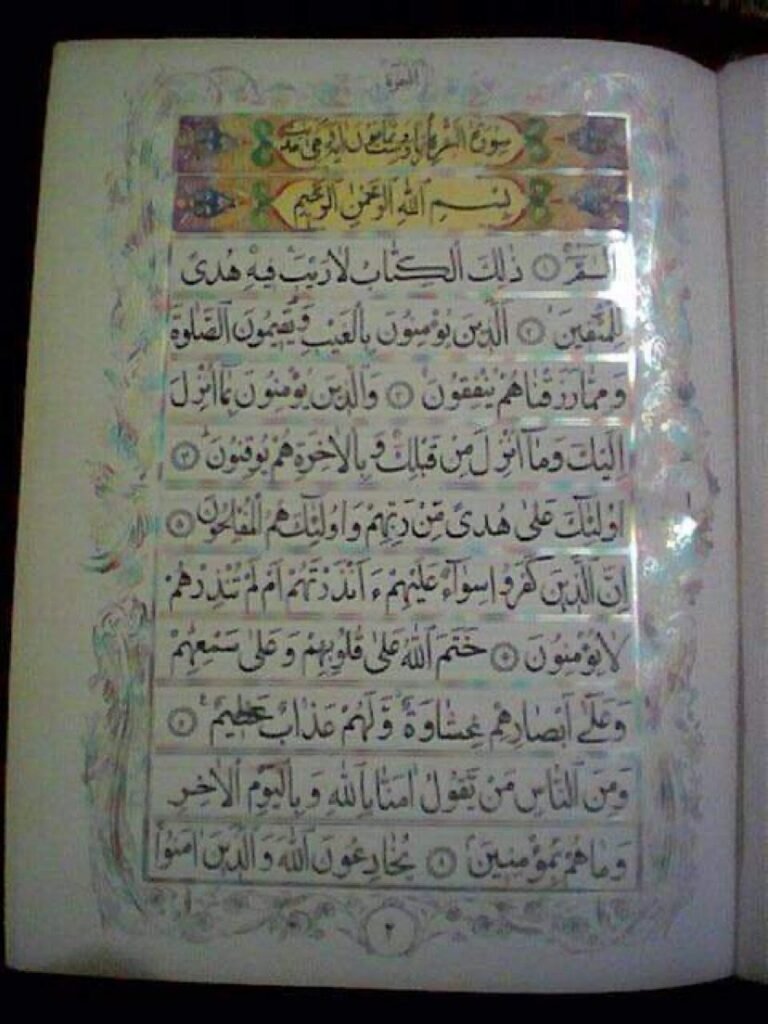 البقرة
سورة البقرة
بسم الله الرحمن الرحيم
الٓمٓ ١ ذٰلِكَ الْكِتَابُ لَا رَيْبَ فِيهِ هُدًى
لِلْمُتَّقِينَ ٢ اَلَّذِينَ يُؤْمِنُونَ بِالْغَيْبِ وَيُقِيمُونَ الصَّلٰوةَ
وَمِمَّا رَزَقْنَاهُمْ يُنْفِقُونَ ٣ وَالَّذِينَ يُؤْمِنُونَ بِمَا اُنْزِلَ
اِلَيْكَ وَمَا اُنْزِلَ مِنْ قَبْلِكَ وَبِالْاٰخِرَةِ هُمْ يُوقِنُونَ ٤
اُولٰئِكَ عَلٰى هُدًى مِنْ رَبِّهِمْ وَاُولٰئِكَ هُمُ الْمُفْلِحُونَ ٥
اِنَّ الَّذِينَ كَفَرُوا سَوَاءٌ عَلَيْهِمْ ءَاَنْذَرْتَهُمْ اَمْ لَمْ تُنْذِرْهُمْ
لَا يُؤْمِنُونَ ٦ خَتَمَ اللّٰهُ عَلٰى قُلُوبِهِمْ وَعَلٰى سَمْعِهِمْ
وَعَلٰى اَبْصَارِهِمْ غِشَاوَةٌ وَلَهُمْ عَذَابٌ عَظِيمٌ ٧
وَمِنَ النَّاسِ مَنْ يَقُولُ اٰمَنَّا بِاللّٰهِ وَبِالْيَوْمِ الْاٰخِرِ
وَمَا هُمْ بِمُؤْمِنِينَ ٨ يُخَادِعُونَ اللّٰهَ وَالَّذِينَ اٰمَنُوا
٢